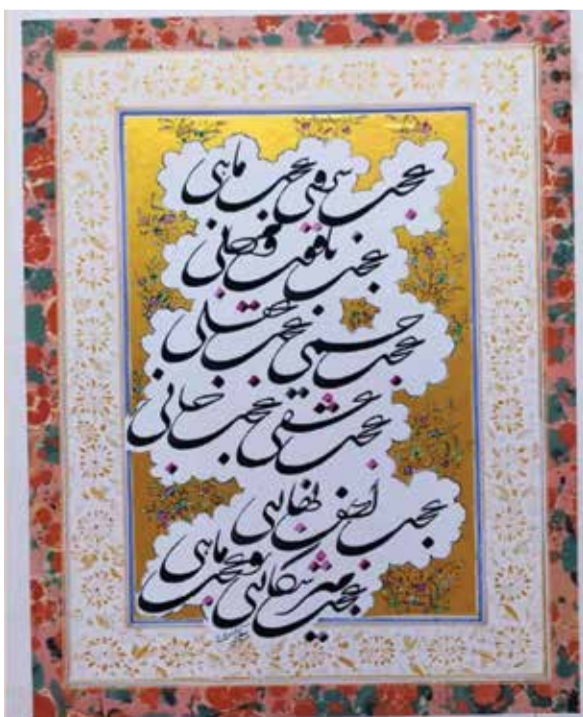 عجب سروی عجب ماهی
عجب یاقوت و مرجانی
عجب جسمی عجب عقلی
عجب عشقی عجب جانی
عجب لطف
عجب میر و عجب ماهی